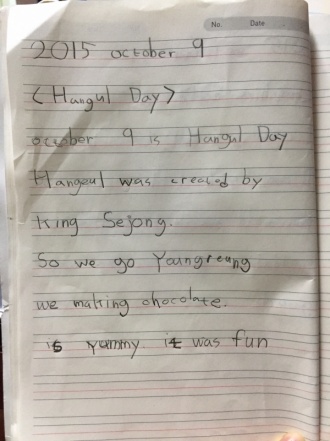 No. Date
2015 october 9
<Hangul Day>
october 9 is Hangul Day
Hangeul was created by
King Sejong.
So we go Youngreung
we making chocolate.
is yummy. it was fun